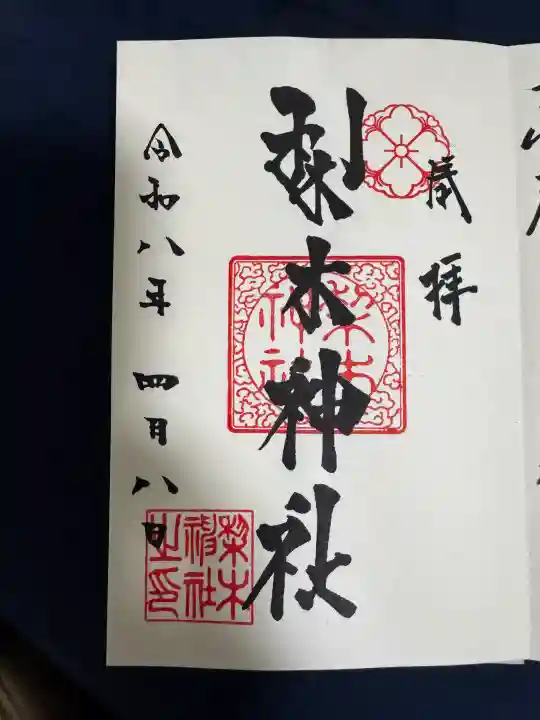 奉拝
梨木神社
令和八年 四月八日
梨木神社
梨木
神社
之印